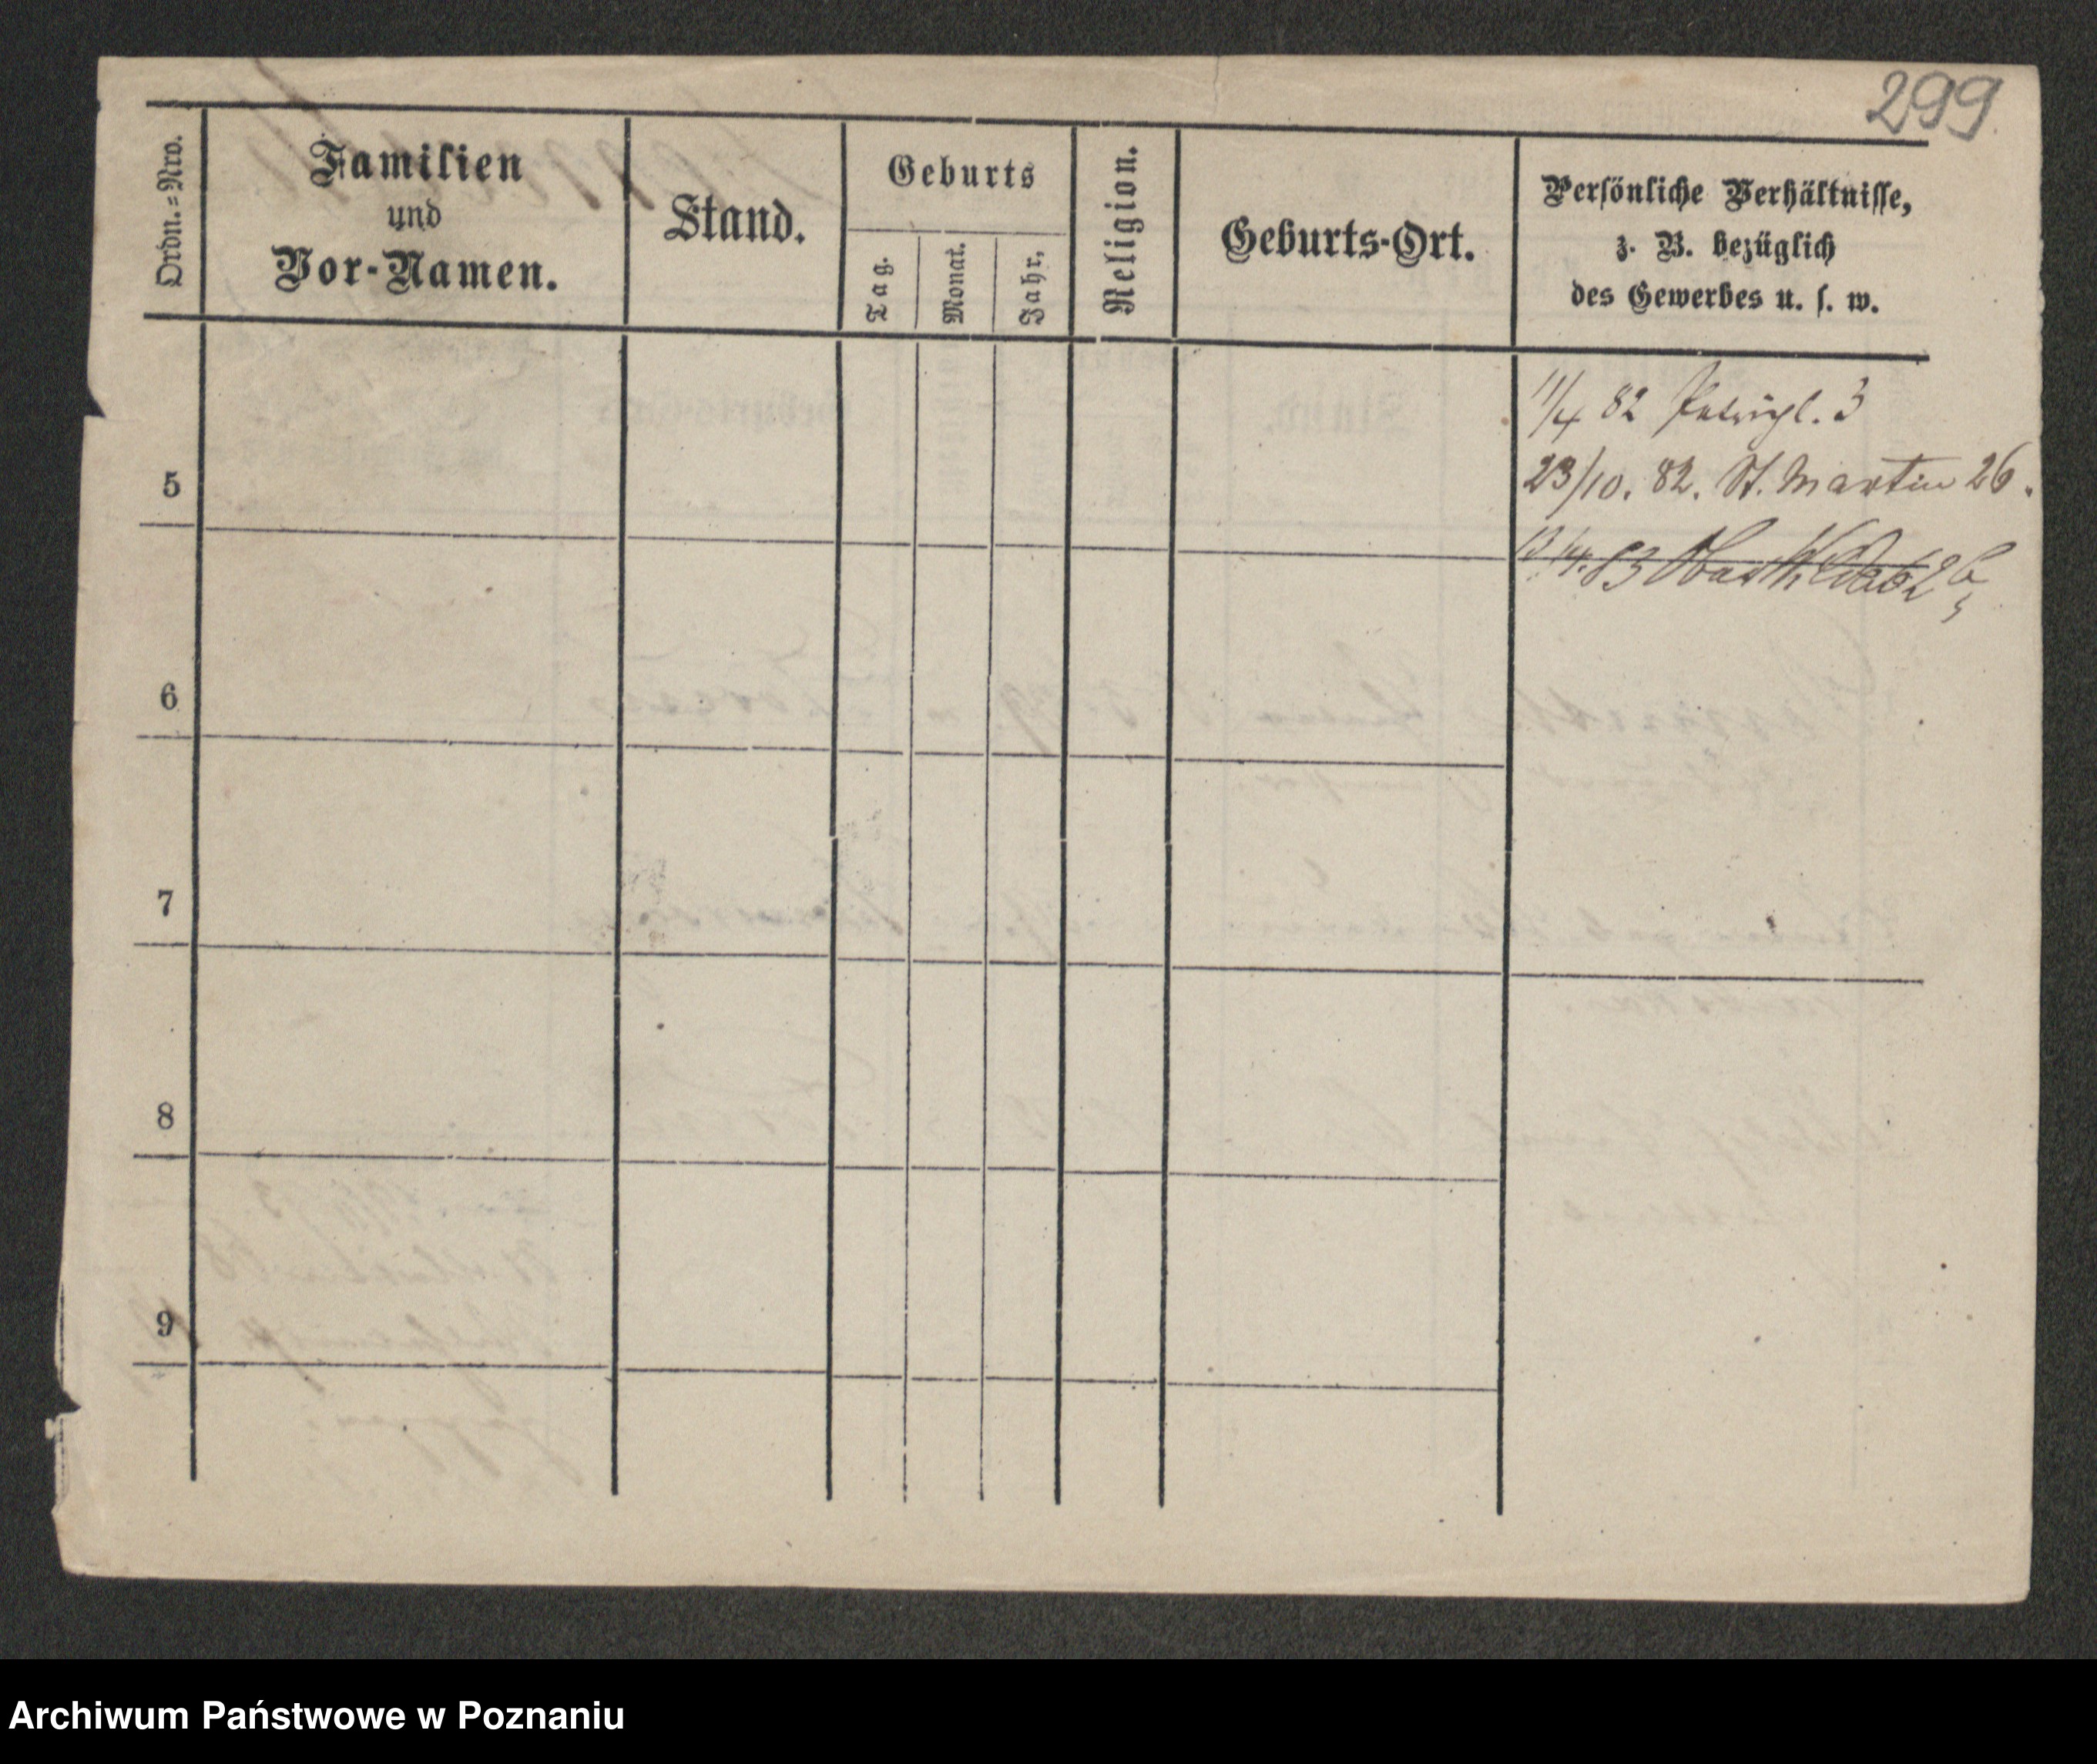 299
Ordn.=Nro.
Familien
und
Vor-Namen.
Stand.
Geburts
Tag.
Monat.
Jahr.
Religion.
Geburts-Ort.
Persönliche Verhältnisse,
z. B. bezüglich
des Gewerbes u. s. w.
11/4 82 3
23/10. 82. St. Martin 26.
5
83 26
6
7
8
9
Archiwum Państwowe w Poznaniu